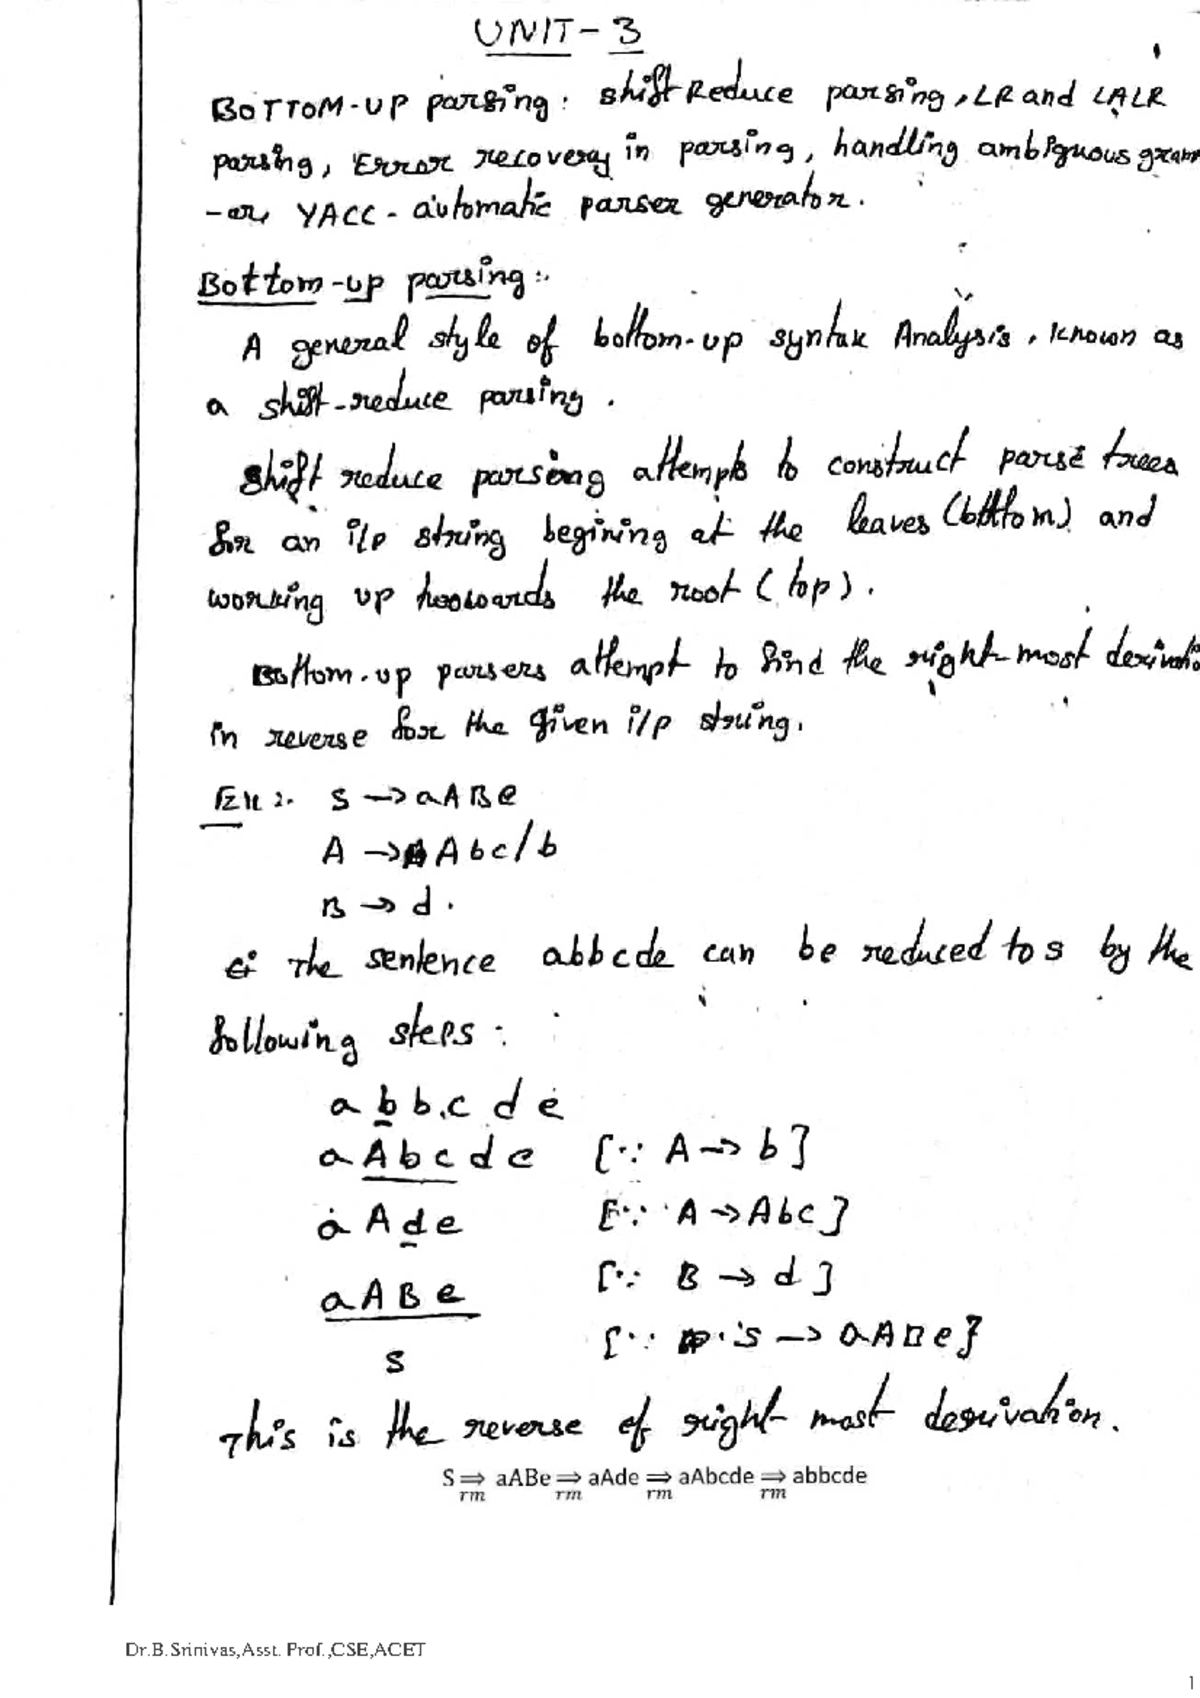 UNIT-3
BOTTOM-UP parsing: shift Reduce parsing, LR and LALR
parsing, Error recovery in parsing, handling ambiguous gram
-ar, YACC - automatic parser generator.
Bottom-up parsing:-
A general style of bottom-up syntax Analysis, known as
a shift-reduce parsing.
Shift reduce parsing attempts to construct parse trees
for an i/p string begining at the leaves (bottom) and
working up toowards the root (top).
Bottom-up parsers attempt to find the right-most derivatio
in reverse for the given i/p string.
Ex:- S → aABe
A → Abc/b
B → d.
The sentence abbcde can be reduced to S by the
following steps:
a b b c d e
a A b c d e [∵ A → b]
a A d e [∵ A → Abc]
a A B e [∵ B → d]
S [∵ S → aABe]
This is the reverse of right most derivation.
S ⇒ aABe ⇒ aAde ⇒ aAbcde ⇒ abbcde
rm rm rm rm
Dr.B.Srinivas,Asst. Prof.,CSE,ACET
1